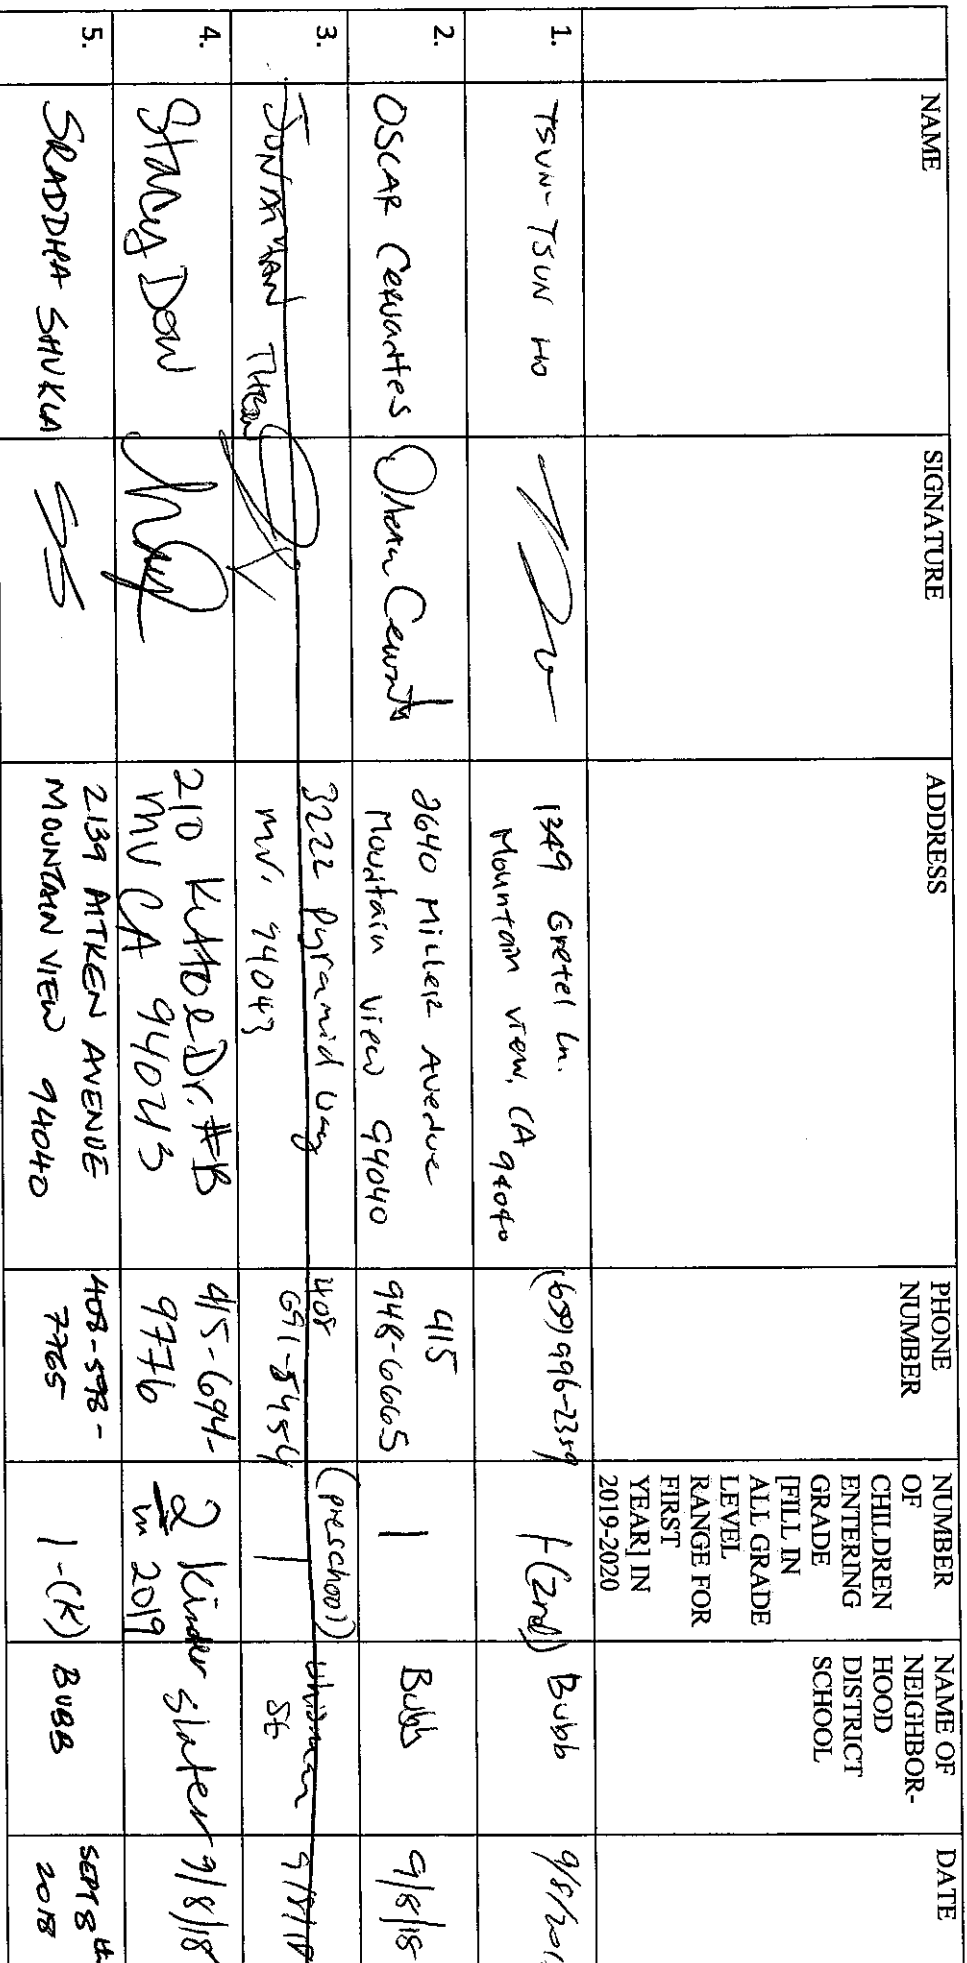 NAME
SIGNATURE
ADDRESS
PHONE
NUMBER
NUMBER
OF
CHILDREN
ENTERING
GRADE
[FILL IN
ALL GRADE
LEVEL
RANGE FOR
FIRST
YEAR] IN
2019-2020
NAME OF
NEIGHBOR-
HOOD
DISTRICT
SCHOOL
DATE
1.
TSUN-TSUN HO
1349 Gretel Ln.
Mountain View, CA 94040
996-2359
1 (2nd)
Bubb
9/8/201
2.
OSCAR Cervantes
Oscar Cervantes
2640 Miller Avenue
Mountain View 94040
415
948-6665
1
Bubb
9/8/18
3.
JONATHAN
3222 Pyramid Way
MV, 94043
408
691-5454
(preschool)
1
9/8/18
4.
Stacy Dow
210 Dr. #B
MV CA 94043
415-694-
9776
2 Kinder
in 2019
Slater
9/8/18
5.
SRADDHA SHUKLA
SS
2139 AITKEN AVENUE
MOUNTAIN VIEW 94040
408-598-
7765
1-(K)
BUBB
SEPT 8th
2018